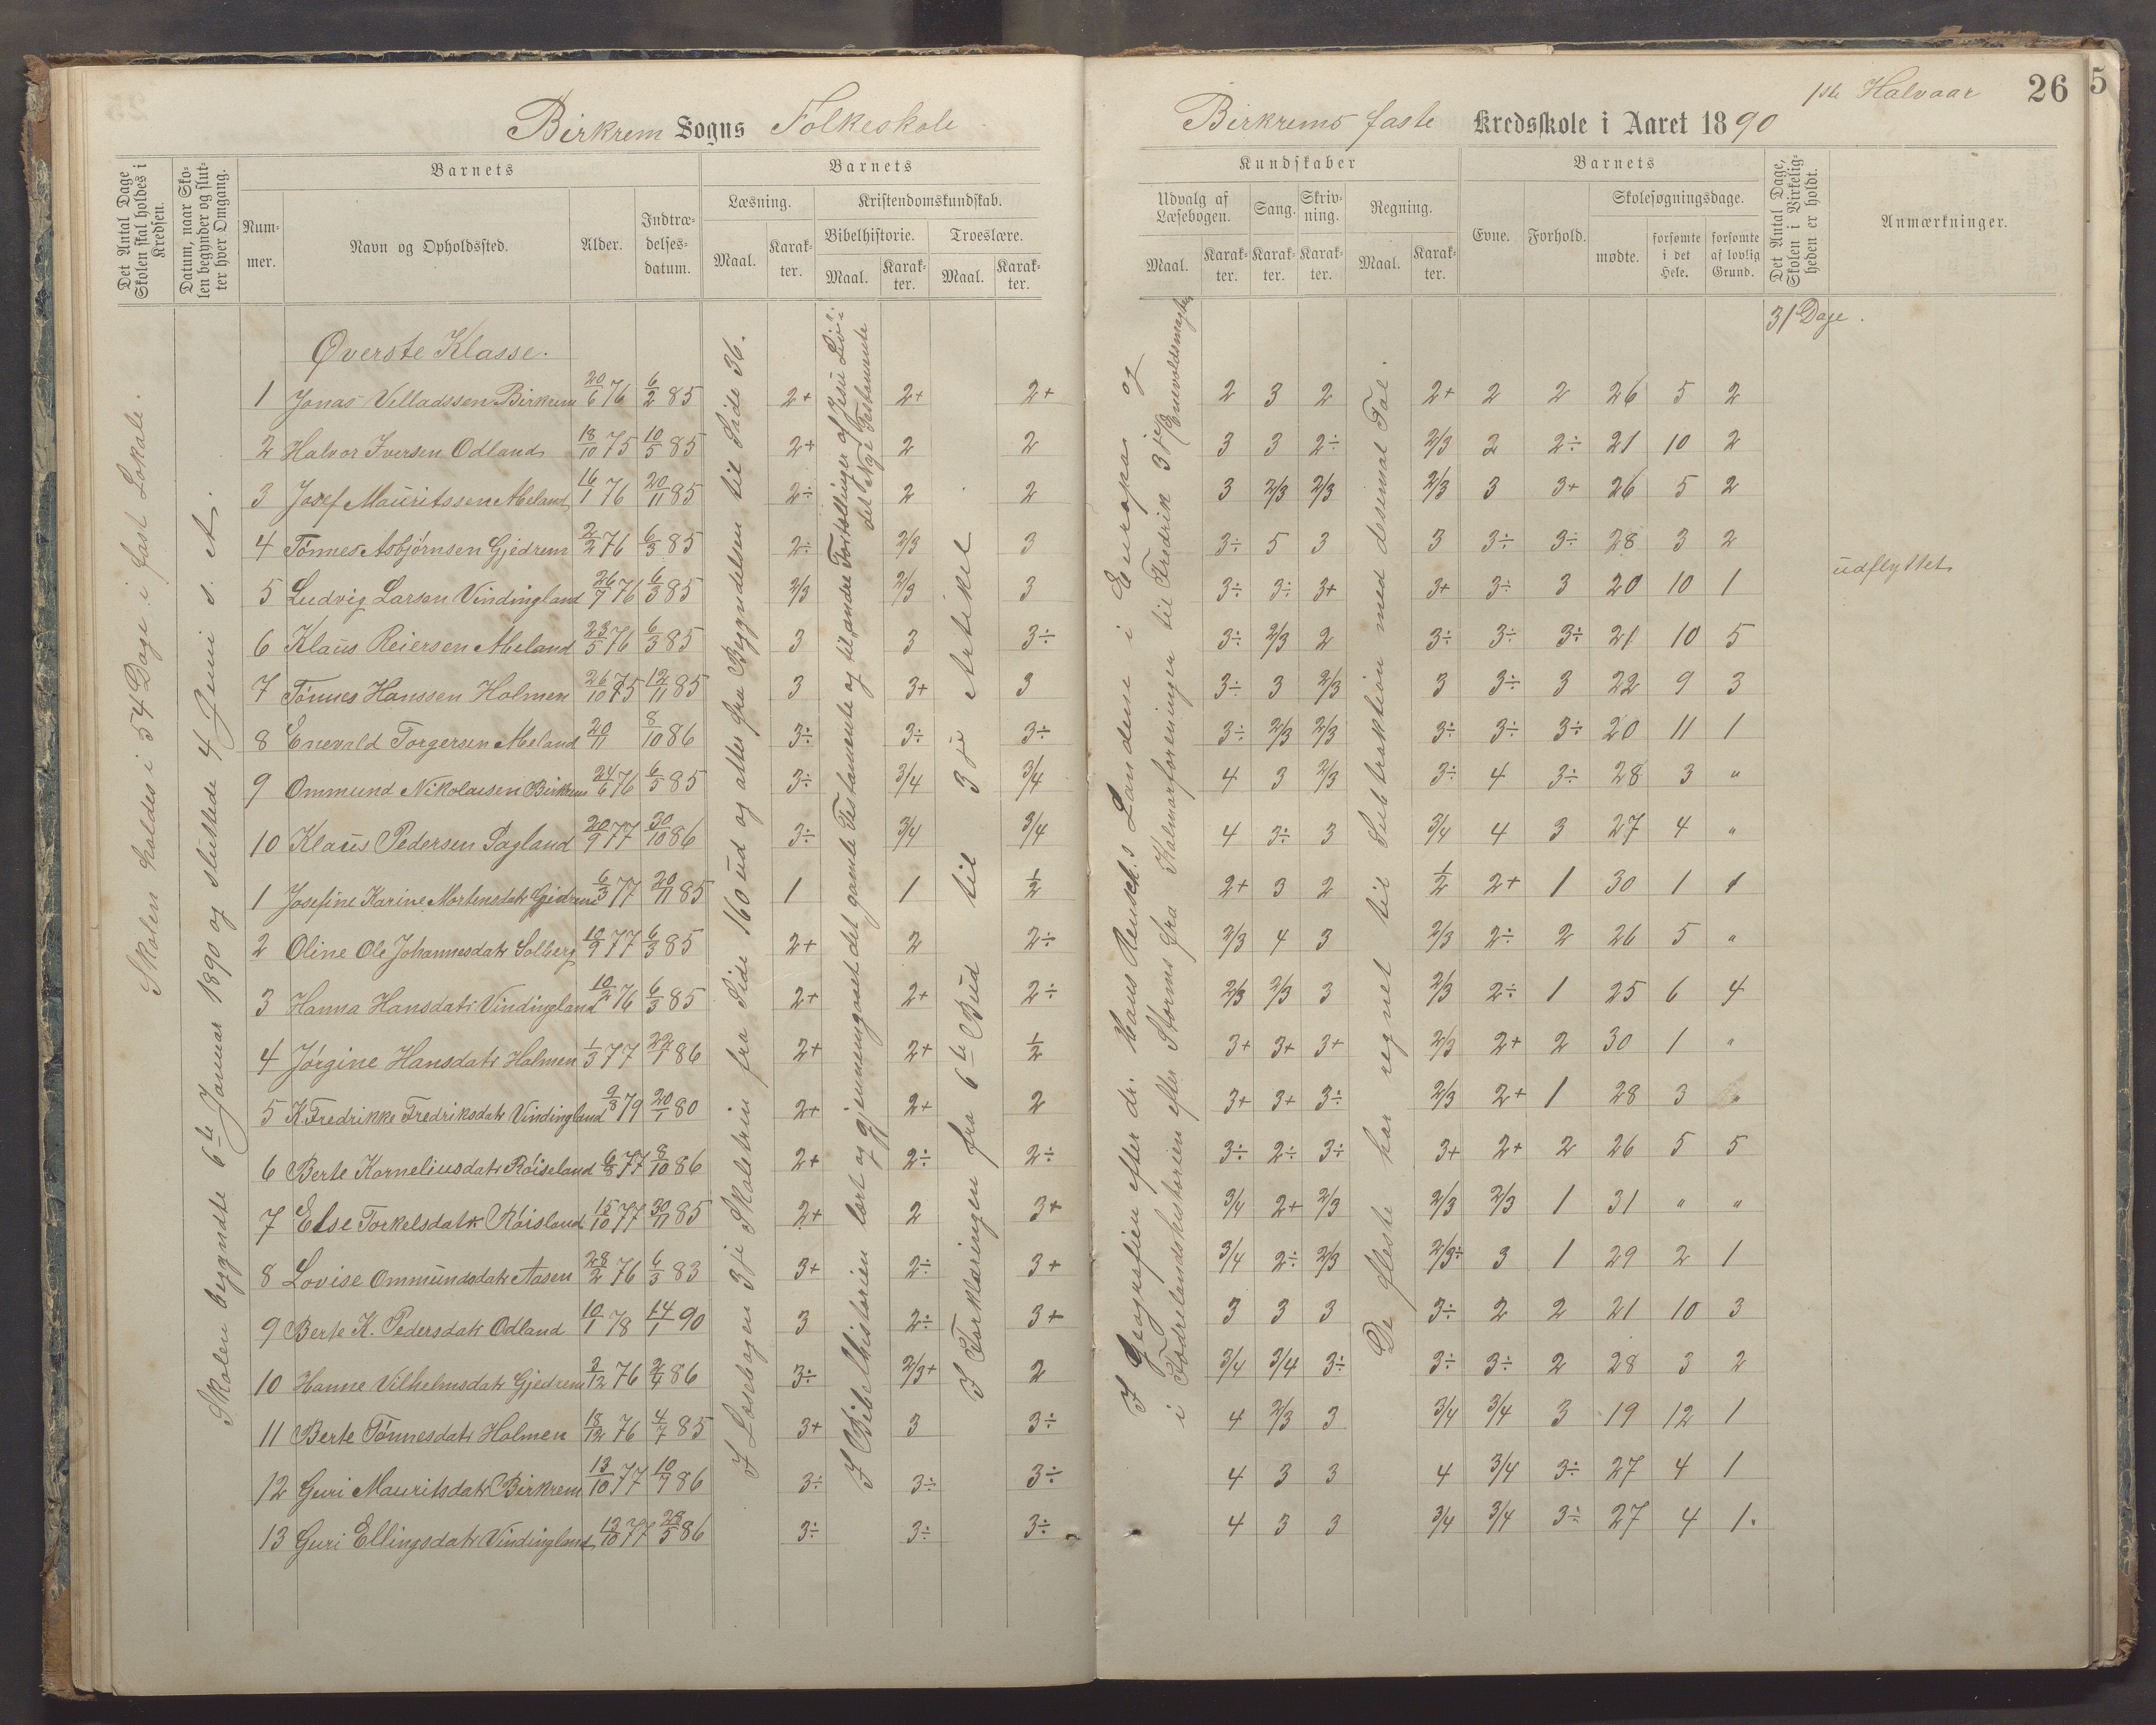 Birkrem Sogns Folkeskole
Birkrems faste Kredsskole i Aaret 1890
1ste Halvaar
26
5
Det Antal Dage Skolen skal holdes i Kredsen.
Datum, naar Skolen begynder og slutter hver Omgang.
Barnets
Nummer.
Navn og Opholdssted.
Alder.
Indtrædelsesdatum.
Barnets
Læsning.
Maal.
Karakter.
Kristendomskundskab.
Bibelhistorie.
Maal.
Karakter.
Troeslære.
Maal.
Karakter.
Kundskaber
Udvalg af Læsebogen.
Maal.
Karakter.
Sang.
Karakter.
Skrivning.
Karakter.
Regning.
Maal.
Karakter.
Barnets
Evne.
Forhold.
Skolesøgningsdage.
mødte.
forsømte i det Hele.
forsømte af lovlig Grund.
Det Antal Dage, Skolen i Virkeligheden er holdt.
Anmærkninger.
Skolen holdes i 54 Dage i fast Lokale.
Skolen begyndte 6te Januar 1890 og sluttede 4 Juni s. A.
I Læsebogen 3je Skoletrin fra Side 160 ud og atter fra Begyndelsen til Side 36.
I Bibelhistorien lært og gjennemgaaet det gamle Testamente og til andre Fortællinger af Jesu Liv i det Nye Testamente
I Forklaringen fra 6te Bud til 3je Artikel
I Geografien efter dr. Hans Reusch.s Landene i Europa og
i Fædrelandshistorien efter Storms fra Kalmarforeningen til Fredrik 3je (Enevoldsmagten
De fleste har regnet til Subtraktion med desimal Tal.
31 Dage.
Øverste Klasse.
1 Jonas Villadssen Birkrem 20/6 76 6/2 85 2+ 2+ 2+ 2 3 2 2+ 2 2 26 5 2
2 Halvor Iversen Odland 18/10 75 10/5 85 2+ 2 2 3 3 2÷ 2/3 2 2÷ 21 10 2
3 Josef Mauritssen Meland 16/1 76 20/11 85 2÷ 2 2 3 2/3 2/3 2/3 3 3+ 26 5 2
4 Tønnes Asbjørnsen Gjedrem 2/2 76 6/3 85 2÷ 2/3 3 3÷ 5 3 3 3÷ 3÷ 28 3 2
5 Ludvig Larsen Vindingland 26/7 76 6/3 85 2/3 2/3 3 3÷ 3÷ 3+ 3+ 3÷ 3 20 10 1 udflyttet
6 Klaus Reiersen Meland 23/5 76 6/3 85 3 3 3÷ 3÷ 2/3 2 3÷ 3÷ 3÷ 21 10 5
7 Tønnes Hanssen Holmen 26/10 75 12/11 85 3 3+ 3 3÷ 3 2/3 3 3÷ 3 22 9 3
8 Enevald Torgersen Meland 20/11 8/10 86 3÷ 3÷ 3÷ 3÷ 2/3 2/3 3÷ 3÷ 3÷ 20 11 1
9 Ommund Nikolaisen Birkrem 24/6 76 6/5 85 3÷ 3/4 3/4 4 3 2/3 3÷ 4 3÷ 28 3 "
10 Klaus Pedersen Sagland 20/9 77 30/10 86 3÷ 3/4 3/4 4 3÷ 3 3/4 4 3 27 4 "
1 Josefine Karine Mortensdatr Gjedrem 6/3 77 20/11 85 1 1 1/2 2+ 3 2 1/2 2+ 1 30 1 1
2 Oline Ole Johannesdatr Solberg 10/9 77 6/3 85 2+ 2 2÷ 2/3 4 3 2/3 2÷ 2 26 5 "
3 Hanna Hansdatr Vindingland 10/2 76 6/3 85 2+ 2+ 2÷ 2/3 2/3 3 2/3 2÷ 1 25 6 4
4 Jørgine Hansdatr Holmen 1/3 77 22/1 86 2+ 2+ 1/2 3+ 3+ 3+ 2/3 2+ 2 30 1 "
5 K. Fredrikke Fredriksdatr Vindingland 2/8 79 20/1 80 2+ 2+ 2 3+ 3+ 3÷ 2/3 2+ 1 28 3 "
6 Berte Korneliusdatr Røiseland 6/8 77 8/10 86 2+ 2÷ 2÷ 3÷ 2÷ 3÷ 3+ 2+ 2 26 5 5
7 Else Torkelsdatr Røisland 15/10 77 30/11 85 2+ 2 3+ 3/4 2+ 2/3 2/3 2/3 1 31 " "
8 Lovise Ommundsdatr Aasen 28/2 76 6/3 83 3+ 2÷ 3+ 3/4 2÷ 2/3 2/3÷ 3 1 29 2 1
9 Berte K. Pedersdatr Odland 10/1 78 14/1 90 3 2÷ 3+ 3 3 3 3÷ 2 2 21 10 3
10 Hanne Vilhelmsdatr Gjedrem 2/12 76 2/4 86 3÷ 2/3+ 2 3/4 3/4 3÷ 3÷ 3÷ 2 28 3 2
11 Berte Tønnesdatr Holmen 18/12 76 4/7 85 3+ 3 3÷ 4 2/3 3 3/4 3/4 3 19 12 1
12 Guri Mauritsdatr Birkrem 13/10 77 10/9 86 3÷ 3÷ 3÷ 4 3 3 4 3/4 3÷ 27 4 1
13 Guri Ellingsdatr Vindingland 12/10 77 28/5 86 3÷ 3÷ 3÷ 4 3 3 3/4 3/4 3÷ 27 4 1.